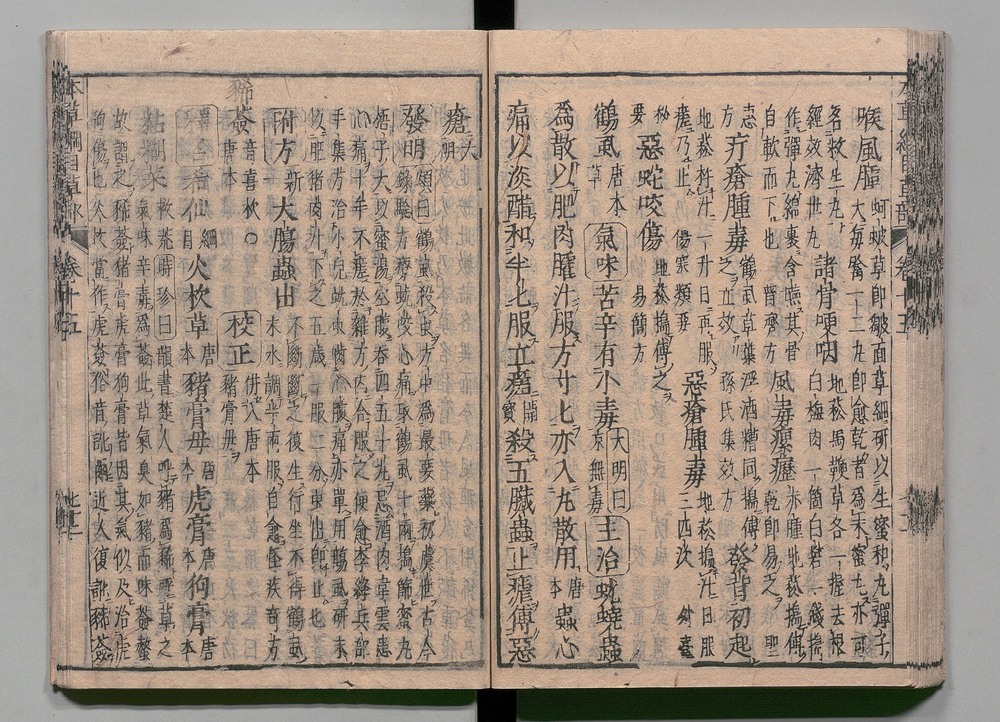 喉風腫 蚵蚾草即皺面草細研以生蜜和丸彈子
大每噙一二丸即愈乾者為末蜜丸亦可
名救生丸 諸骨哽咽 地菘馬鞭草各一握去根
經效濟世丸 白梅肉一箇白礬一錢搗
作彈丸綿裹含嚥其骨 風毒瘰癧 赤腫地菘搗傅
自軟而下也 普濟方 乾即易之 聖
方 疔瘡腫毒 鶴虱草葉浮酒糟同搗傅 發背初起
之立效 孫氏集效方
地菘杵汁一升日再服 惡瘡腫毒 地菘搗汁日服
瘥乃止 傷寒類要 三四次 外臺
秘 惡蛇咬傷 地菘搗傅之
要 易簡方
鶴虱 唐本 氣味 苦辛有小毒 大明曰 主治 蚘蟯蟲
草 涼無毒
為散以肥肉臛汁服方寸匕亦入丸散用 唐本 蟲心
痛以淡醋和半匕服立瘥 開寶 殺五臟蟲止瘧傅惡
瘡 大明
發明 頌曰鶴虱殺蟲方中為最要藥初虞世古今
錄驗方療蚘咬心痛取鶴虱十兩搗篩蜜丸
梧子大以蜜湯空腹吞四五十丸忌酒肉韋雲患
心痛十年不瘥於雜方內合服之便愈李絳兵部
手集方治小兒蚘蟲嚙心腹痛亦單用鶴虱研末
以肥豬肉汁下之五歲一服二分蟲出即止也
附方 新 大腸蟲出 不斷斷之復生行坐不得鶴虱
末水調半兩服自愈怪疾奇方
豨薟 音喜杴○ 校正 併入唐本
唐本 豬膏母
仙 綱目 火杴草 唐本 豬膏母 唐本 虎膏 唐本 狗膏 唐本
粘糊菜 救荒 時珍曰 韻書楚人呼豬為豨呼草之
氣味辛毒為薟此草氣臭如豬而味薟螫
故謂之豨薟豬膏虎膏狗膏皆因其氣似及治虎
狗傷也火杴當作虎薟俗音訛爾近人復訛豨薟